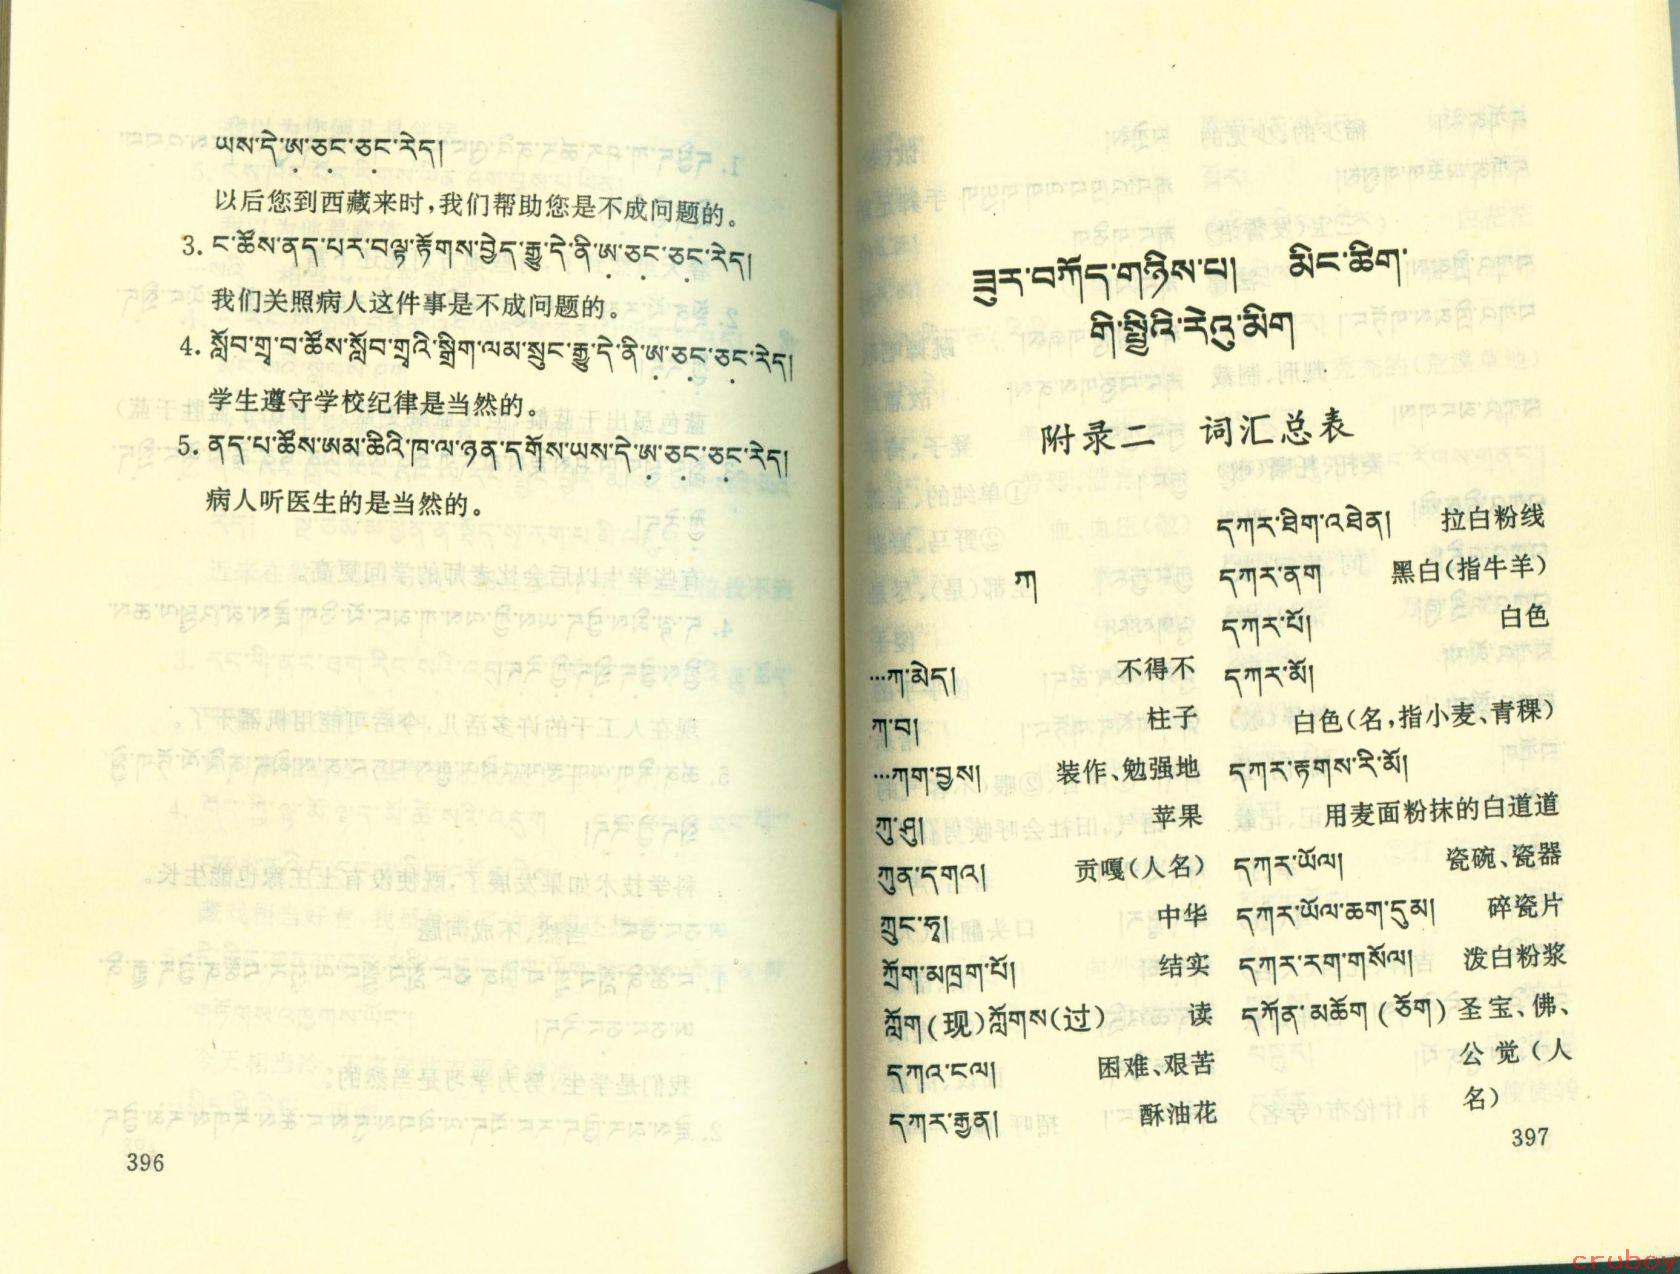 ཡས་དེ་ཨ་ཅང་ཅང་རེད།
以后您到西藏来时,我们帮助您是不成问题的。
3. ང་ཚོས་ནད་པར་བལྟ་རྟོགས་བྱེད་རྒྱུ་དེ་ནི་ཨ་ཅང་ཅང་རེད།
我们关照病人这件事是不成问题的。
4. སློབ་གྲྭ་བ་ཚོས་སློབ་གྲྭའི་སྒྲིག་ལམ་སྲུང་རྒྱུ་དེ་ནི་ཨ་ཅང་ཅང་རེད།
学生遵守学校纪律是当然的。
5. ནད་པ་ཚོས་ཨམ་ཆིའི་ཁ་ལ་ཉན་དགོས་ཡས་དེ་ཨ་ཅང་ཅང་རེད།
病人听医生的是当然的。
396
ཟུར་བཀོད་གཉིས་པ། མིང་ཚིག་
གི་སྤྱིའི་རེའུ་མིག
附录二 词汇总表
ཀ
…ཀ་མེད། 不得不
ཀ་བ། 柱子
…ཀག་བྱས། 装作、勉强地
ཀུ་ཤུ། 苹果
ཀུན་དགའ། 贡嘎(人名)
ཀྲུང་ཧྭ། 中华
ཀྲོག་མཁྲག་པོ། 结实
ཀློག(现)ཀློགས(过) 读
དཀའ་ངལ། 困难、艰苦
དཀར་རྒྱན། 酥油花
དཀར་ཐིག་འཐེན། 拉白粉线
དཀར་ནག 黑白(指牛羊)
དཀར་པོ། 白色
དཀར་མོ།
白色(名,指小麦、青稞)
དཀར་རྟགས་རི་མོ།
用麦面粉抹的白道道
དཀར་ཡོལ། 瓷碗、瓷器
དཀར་ཡོལ་ཆག་དུམ། 碎瓷片
དཀར་རག་གསོལ། 泼白粉浆
དཀོན་མཆོག(ཅོག) 圣宝、佛、
公觉(人
名)
397
cruboy